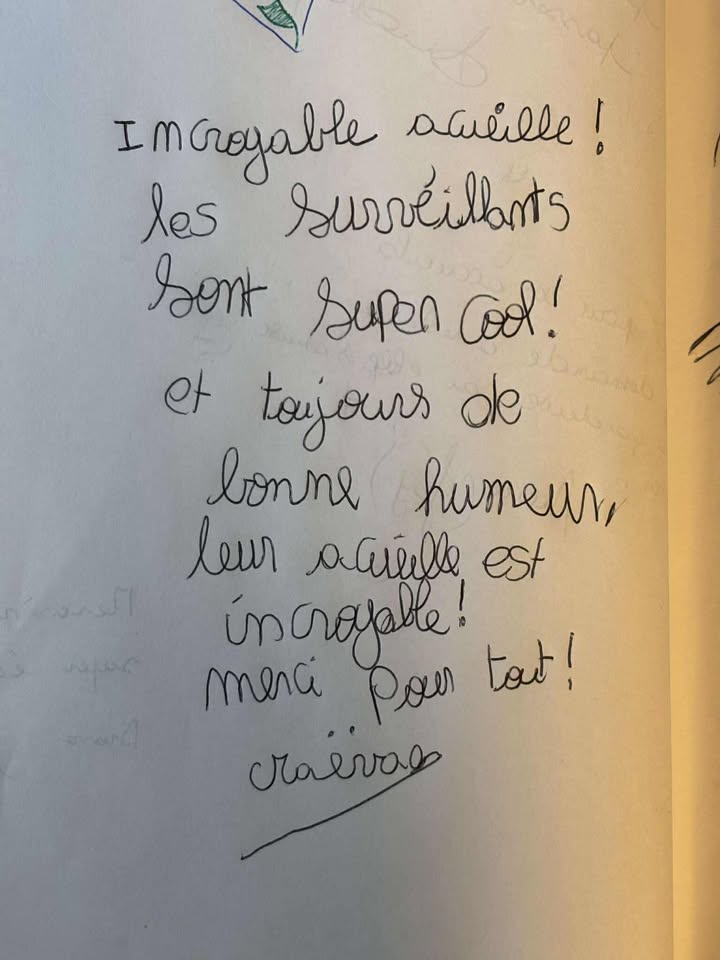 Incroyable acuéille !
les surréillants
sont super cool !
et toujours de
bonne humeur,
leur acuéille est
incroyable !
merci pour tout !